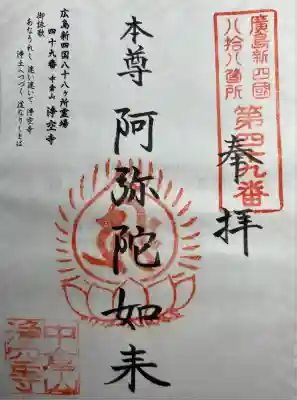 廣島新四國
八拾八箇所
第四十九番
奉拝
本尊 阿弥陀如来
広島新四国八十八ヶ所霊場
四十九番 中倉山 浄空寺
御詠歌
あなうれし 迷い迷いて 浄空寺
浄土へつづく 道なりしとは
中倉山
浄空寺